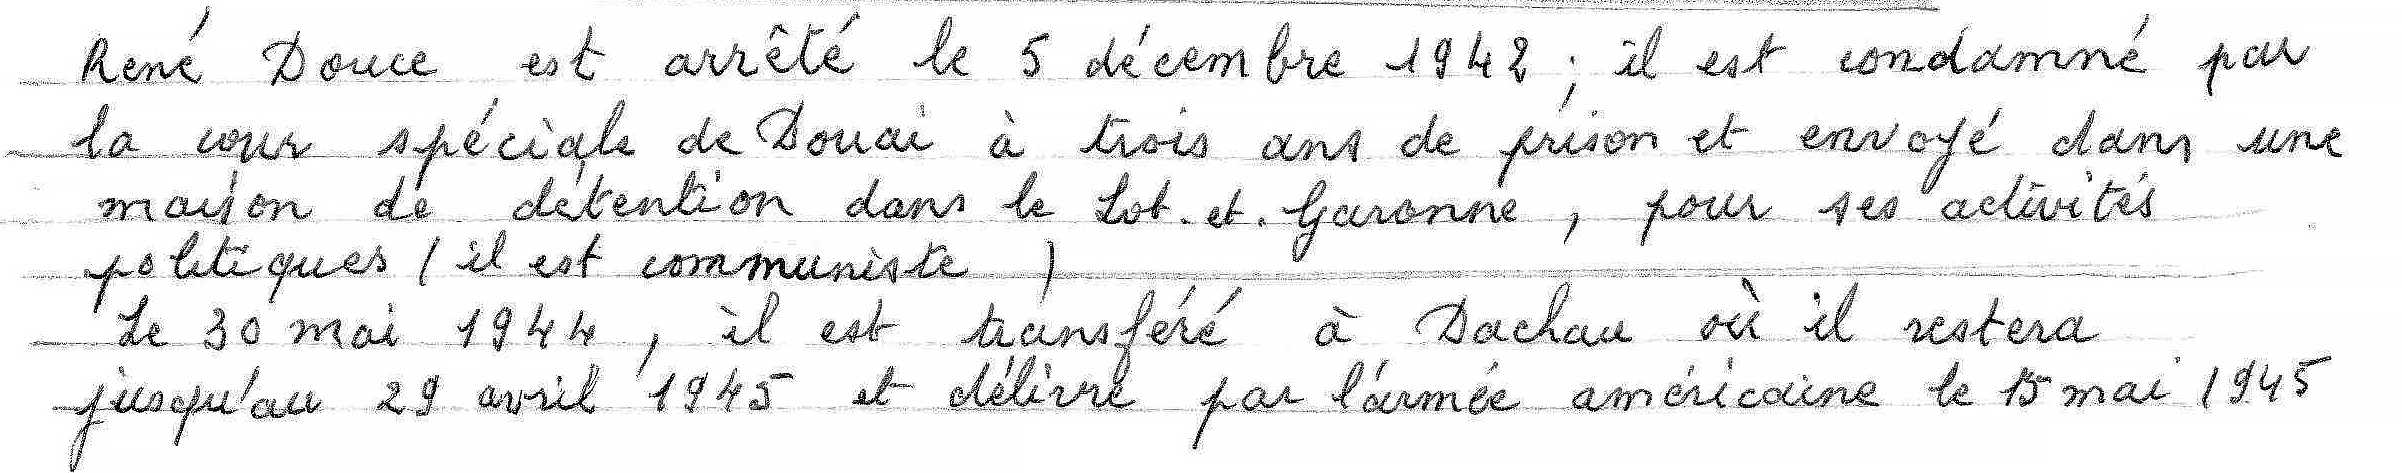 René Douce est arrêté le 5 décembre 1942 ; il est condamné par
la cour spéciale de Douai à trois ans de prison et envoyé dans une
maison de détention dans le Lot. et. Garonne, pour ses activités
politiques ( il est communiste )
Le 30 mai 1944, il est transféré à Dachau où il restera
jusqu'au 29 avril 1945 et délivré par l'armée américaine le 15 mai 1945